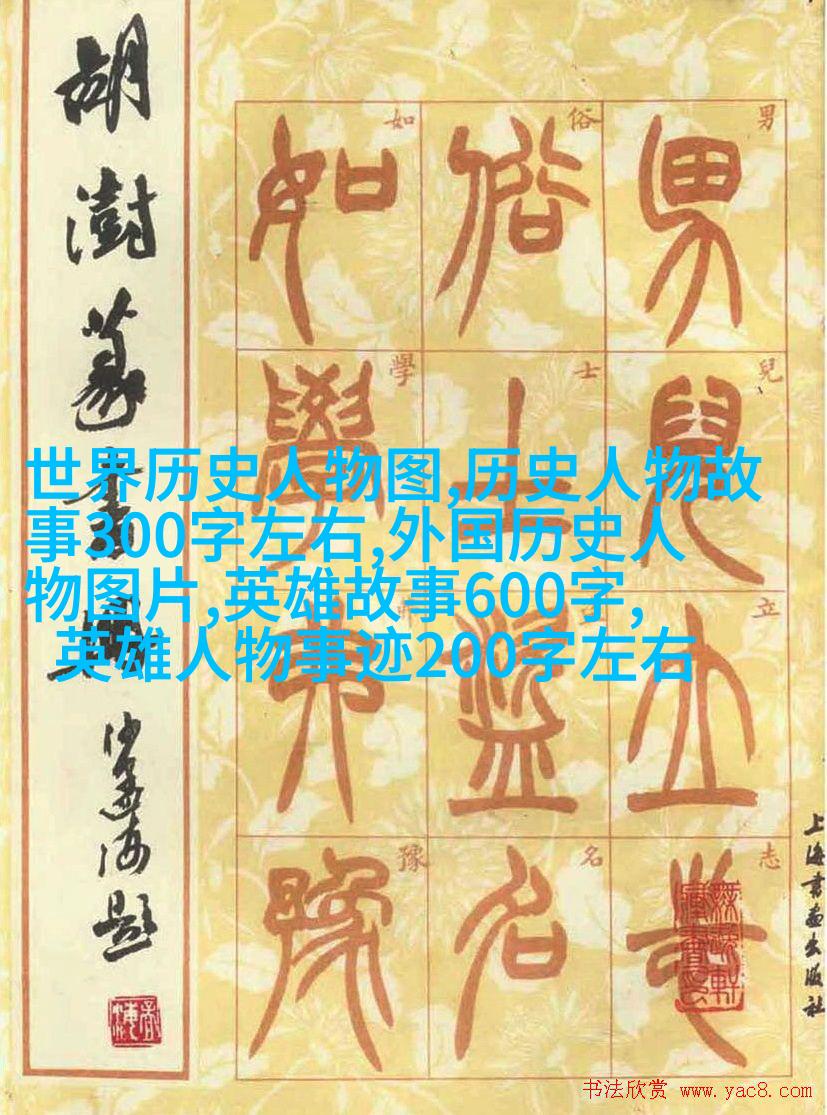 胡澍篆書
沙孟海題
男兒立志
俗士盜名
如學不豫
男
兒
立
志
俗
士
名
如
學
豫
世界历史人物图,历史人物故
事300字左右,外国历史人
物图片,英雄故事600字,
英雄人物事迹200字左右
上海書畫出版社
书法欣赏 www.yac8.com